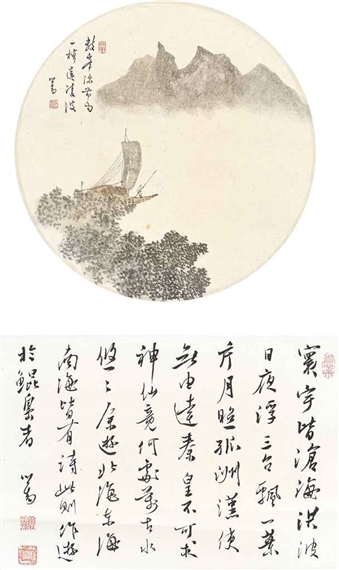 數峯
一棹遠凌波
心畬
寰宇皆滄海洪波
日夜浮三台飄一葉
片月照孤洲漢使
無由達秦皇不可求
神仙竟何處萬古水
悠〻余遊北海東海
南海皆有詩此則作遊
於鯤島者 心畬